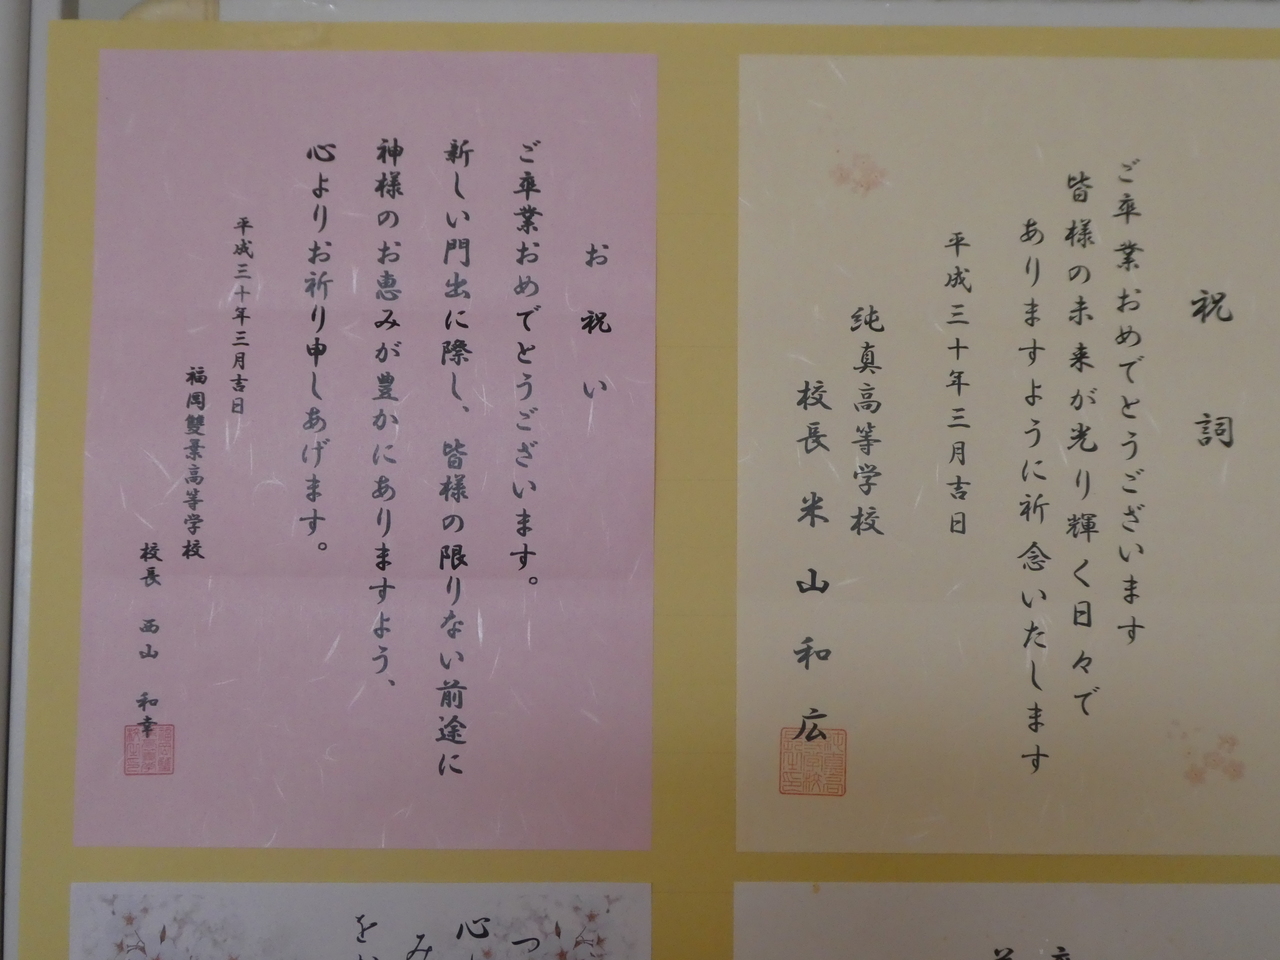 祝詞
ご卒業おめでとうございます
皆様の未来が光り輝く日々で
ありますように祈念いたします
平成三十年三月吉日
純真高等学校
校長 米山和広
お祝い
ご卒業おめでとうございます。
新しい門出に際し、皆様の限りない前途に
神様のお恵みが豊かにありますよう、
心よりお祈り申しあげます。
平成三十年三月吉日
福岡雙葉高等学校
校長 西山 和幸
つ
心
み
を